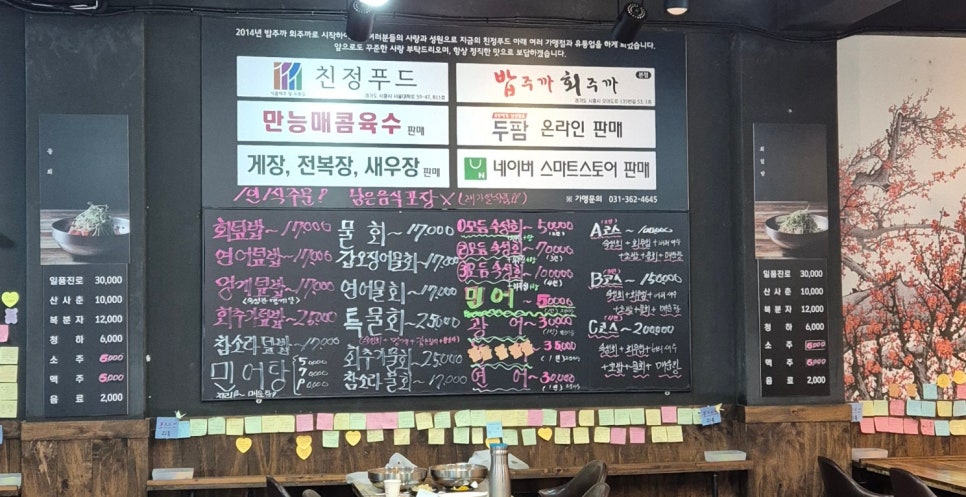 2014년 밥주까 회주까로 시작하여 여러분들의 사랑과 성원으로 지금의 친정푸드 아래 여러 가맹점과 유통업을 하게 되었습니다.
앞으로도 꾸준한 사랑 부탁드리오며, 항상 정직한 맛으로 보답하겠습니다.
친정푸드
밥주까 회주까 본점
만능매콤육수 판매
두팜 온라인 판매
게장, 전복장, 새우장 판매
N 네이버 스마트스토어 판매
1인 1식 주문! 남은음식 포장 X
※ 가맹문의 031-362-4645
회덮밥~17,000
연어덮밥~17,000
멍게덮밥~17,000
회주까덮밥~25,000
참소라덮밥~17,000
민어탕
5,0000
7,0000
9,0000
물회~17,000
갑오징어물회~17,000
연어물회~17,000
특물회~25,000
회주까물회~25,000
참소라물회~17,000
①모듬숙성회~50,000
②모듬숙성회~70,000
③모듬숙성회~100,000
민어~50,000
광어~30,000
35,000
연어~30,000
A코스~100,000
B코스~150,000
C코스~200,000
물회
일품진로 30,000
산사춘 10,000
복분자 12,000
청하 6,000
소주 5,000
맥주 5,000
음료 2,000
회덮밥
일품진로 30,000
산사춘 10,000
복분자 12,000
청하 6,000
소주 5,000
맥주 5,000
음료 2,000